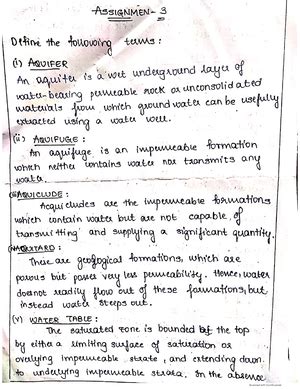 ASSIGNMEN - 3
Define the following terms :
(i) AQUIFER
An aquifer is a wet underground layer of
water-bearing permeable rock or unconsolidated
materials from which ground water can be usefully
extracted using a water well.
(ii) AQUIFUGE :
An aquifuge is an impermeable formation
which neither contains water nor transmits any
water.
AQUICLUDE :
Acquicludes are the impermeable formations
which contain water but are not capable of
transmitting and supplying a significant quantity.
AQUITARD :
These are geological formations, which are
porous but posses very less permeability. Hence, water
does not readily flow out of these formations, but
instead water steeps out.
(v) WATER TABLE :
The saturated zone is bounded at the top
by either a limiting surface of saturation or
overlying impermeable strate, and extending down
to underlying impermeable strata. In the absence